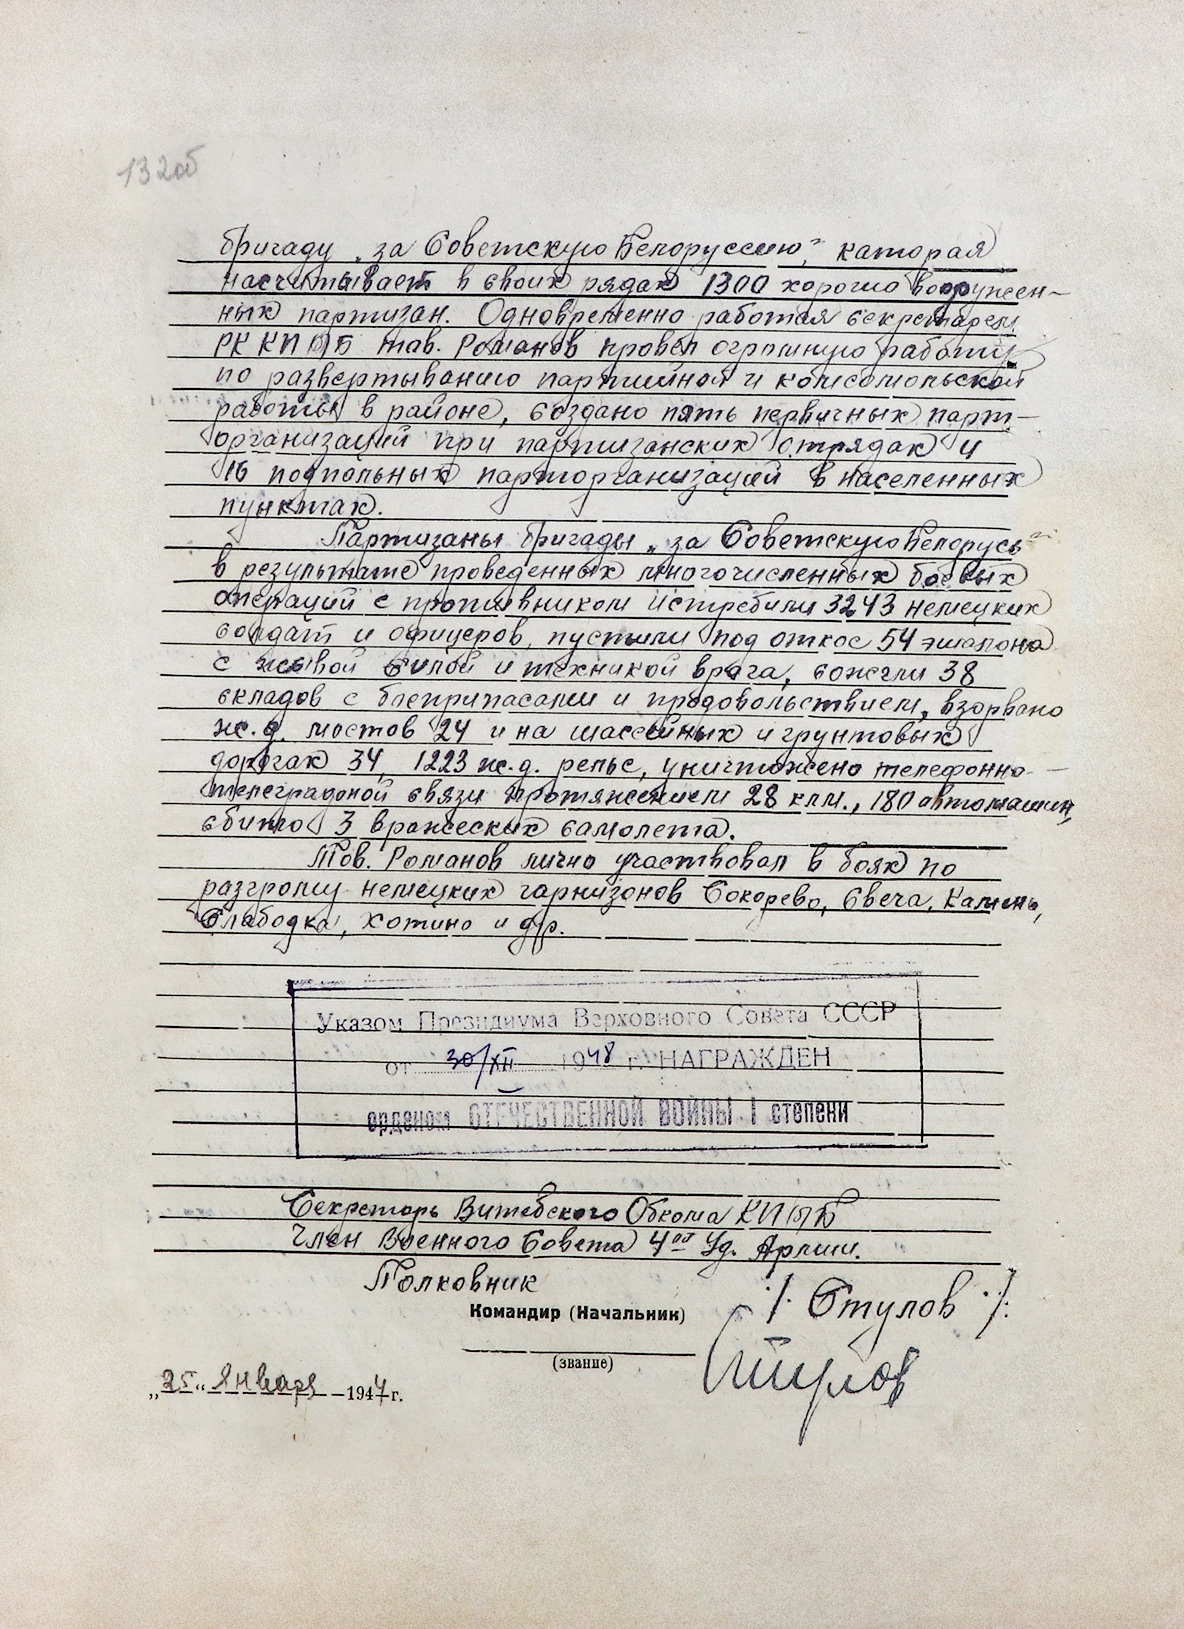 132об
бригаду „за Советскую Белоруссию", каторая
насчитывает в своих рядах 1300 хорошо вооружен-
ных партизан. Одновременно работая секретарем
РК КП/б/Б тов. Романов провел огромную работу
по развертыванию партийной и комсомольской
работы в районе, создано пять первичных парт-
организаций при партизанских отрядах и
16 подпольных парторганизаций в населенных
пунктах.
Партизаны бригады „за Советскую Белорусь"
в результате проведенных многочисленных боевых
операций с противником истребили 3243 немецких
солдат и офицеров, пустили под откос 54 эшалона
с живой силой и техникой врага, сожгли 38
складов с боеприпасами и продовольствием, взорвано
ж.д. мостов 24 и на шассейных и грунтовых
дорогах 34, 1223 ж.д. рельс, уничтожено телефонно-
телеграфной связи протяжением 28 клм., 180 автомашин,
сбито 3 вражеских самолета.
Тов. Романов лично участвовал в боях по
разгрому немецких гарнизонов Сокорево, Свеча, Камень,
Слабодка, Хотино и др.
Указом Президиума Верховного Совета СССР
от 30/XII 1948 г. НАГРАЖДЕН
орденом ОТЕЧЕСТВЕННОЙ ВОЙНЫ I степени
Секретарь Витебского Обкома КП/б/Б
Член Военного Совета 4ой Уд. Армии.
Полковник
Командир (Начальник) /. Стулов ./.
(звание) Стулов
„25" Января 1944 г.